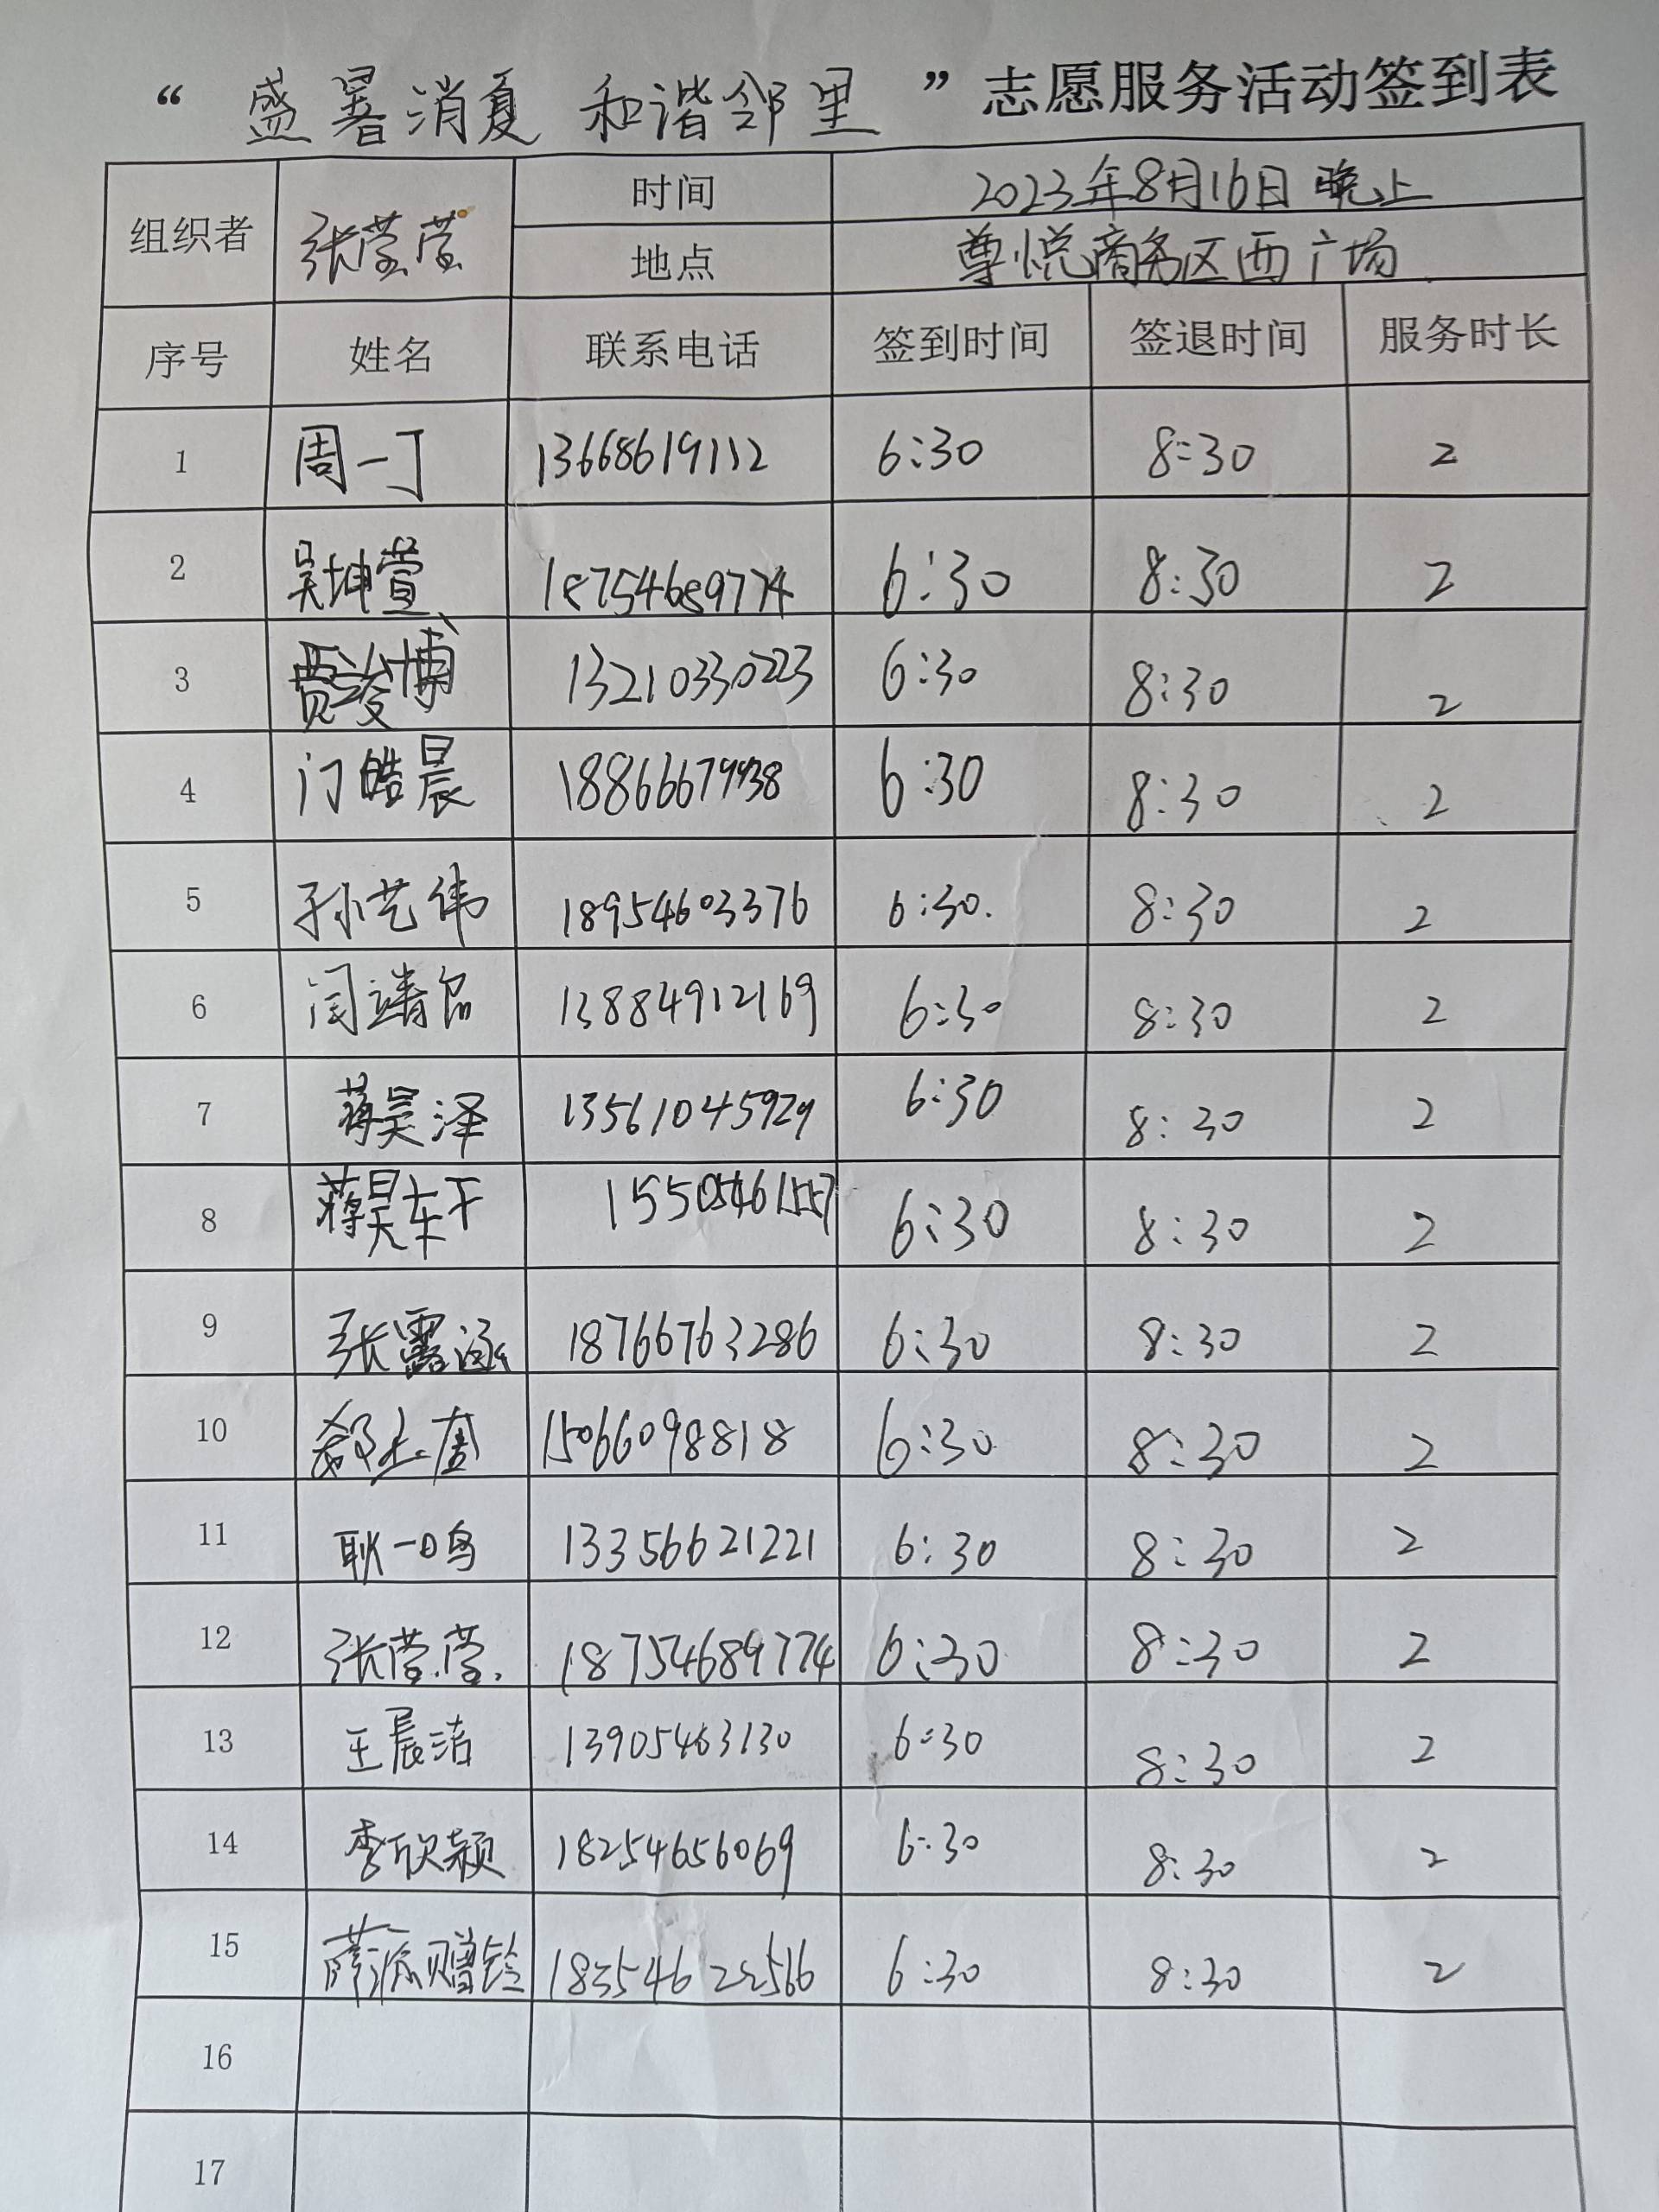 “盛暑消夏 和谐邻里”志愿服务活动签到表
组织者 张莹莹 时间 2023年8月16日 晚上
地点 尊悦商务区西广场
序号 姓名 联系电话 签到时间 签退时间 服务时长
1 周一丁 13668619112 6:30 8:30 2
2 吴坤萱 18754689774 6:30 8:30 2
3 贾浚博 13210330223 6:30 8:30 2
4 门皓晨 6:30 8:30 2
5 孙艺伟 18954603376 6:30. 8:30 2
6 13884912169 6:30 8:30 2
7 蒋昊泽 13561045929 6:30 8:30 2
8 蒋昊 15505461557 6:30 8:30 2
9 张露涵 18766763286 6:30 8:30 2
10 15066098818 6:30 8:30 2
11 耿一鸣 13356621221 6:30 8:30 2
12 张莹莹. 18754689774 6:30 8:30 2
13 王晨洁 13905463130 6:30 8:30 2
14 李欣颖 18254656069 6:30 8:30 2
15 6:30 8:30 2
16
17